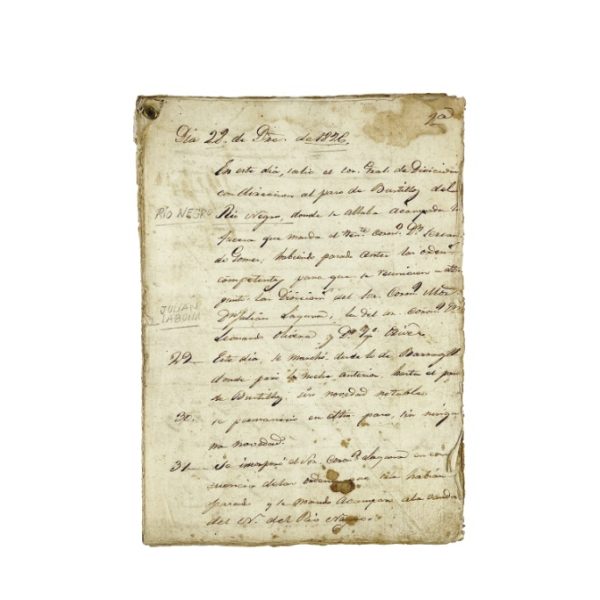 Dia 22. de Dre. de 1826.
En este dia, salio el Sor. Gral. de Division
con direccion al paso de Bustillo del
RÍO NEGRO
Rio Negro, donde se allaba Acampada la
fuerza que manda el Tente. Coronl. Dn. Servan-
do Gomez, habiendo pasado antes las ordens.
competentes para que se reuniesen en dho
punto la Division del Sor. Coronl.
JULIAN
LAGUNA
Dn Julian Laguna, la del Sr. Coronl.
Leonardo Olivera y Dn. Rivera
29_ Este dia se marchó desde lo de
donde pasó la noche anterior hasta el paso
de Bustillo sin novedad notable.
30. se permaneció en dho paso, sin ningu-
na novedad.
31_ Se incorporó el Sor. Coronl. Laguna en con-
secuencia de las ordenes que se le habian
pasado y se mandó Acampar a la vanda
del N. del Rio Negro.